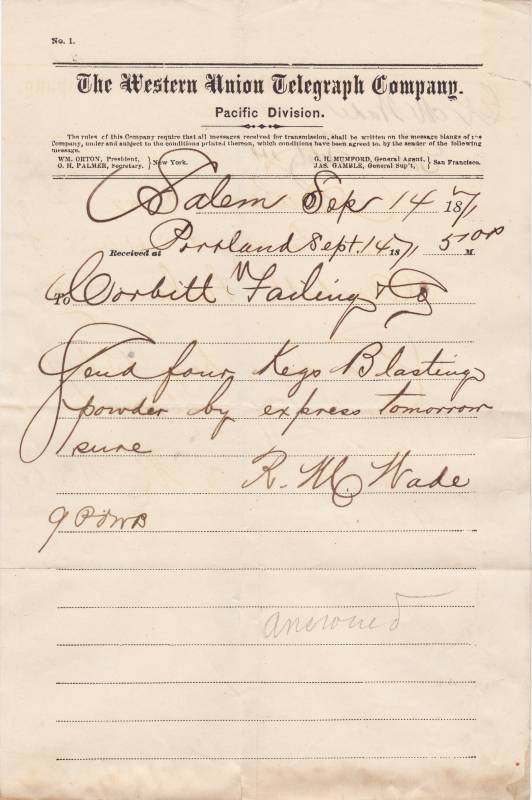 No. 1.
The Western Union Telegraph Company.
Pacific Division.
The rules of this Company require that all messages received for transmission, shall be written on the message blanks of the
Company, under and subject to the conditions printed thereon, which conditions have been agreed to, by the sender of the following
message.
WM. ORTON, President, } New York. G. H. MUMFORD, General Agent, } San Francisco.
O. H. PALMER, Secretary. JAS. GAMBLE, General Sup't,
Salem Sep 14 1871
Received at Portland Sept. 14 1871 510 P M.
To Corbitt Failing & Co
Send four Kegs Blasting
powder by express tomorrow
sure
R. M. Wade
answered